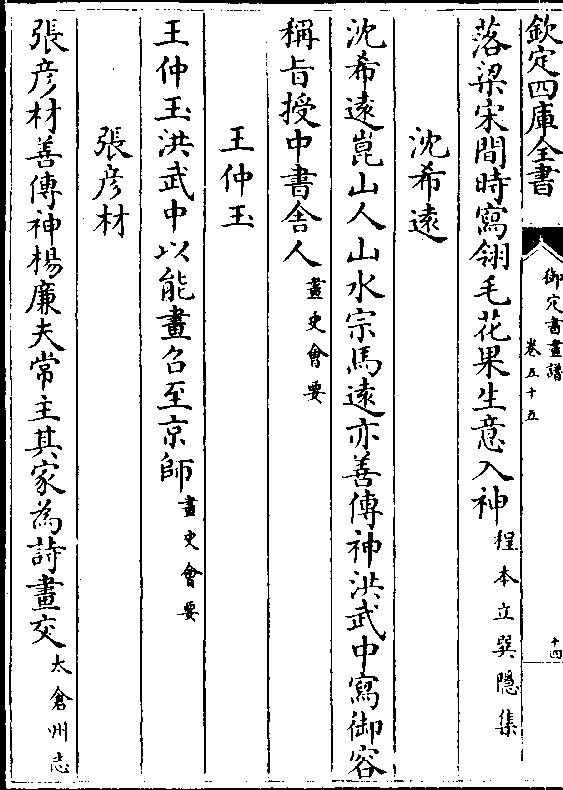 欽定四庫全書
御定書畫譜
卷五十五
十四
落梁宋間時寫翎毛花果生意入神程本立巽隱集
沈希遠
沈希遠崑山人山水宗馬遠亦善傳神洪武中寫御容
稱旨授中書舍人畫史會要
王仲玉
王仲玉洪武中以能畫召至京師畫史會要
張彥材
張彥材善傳神楊廉夫常主其家為詩畫交太倉州志